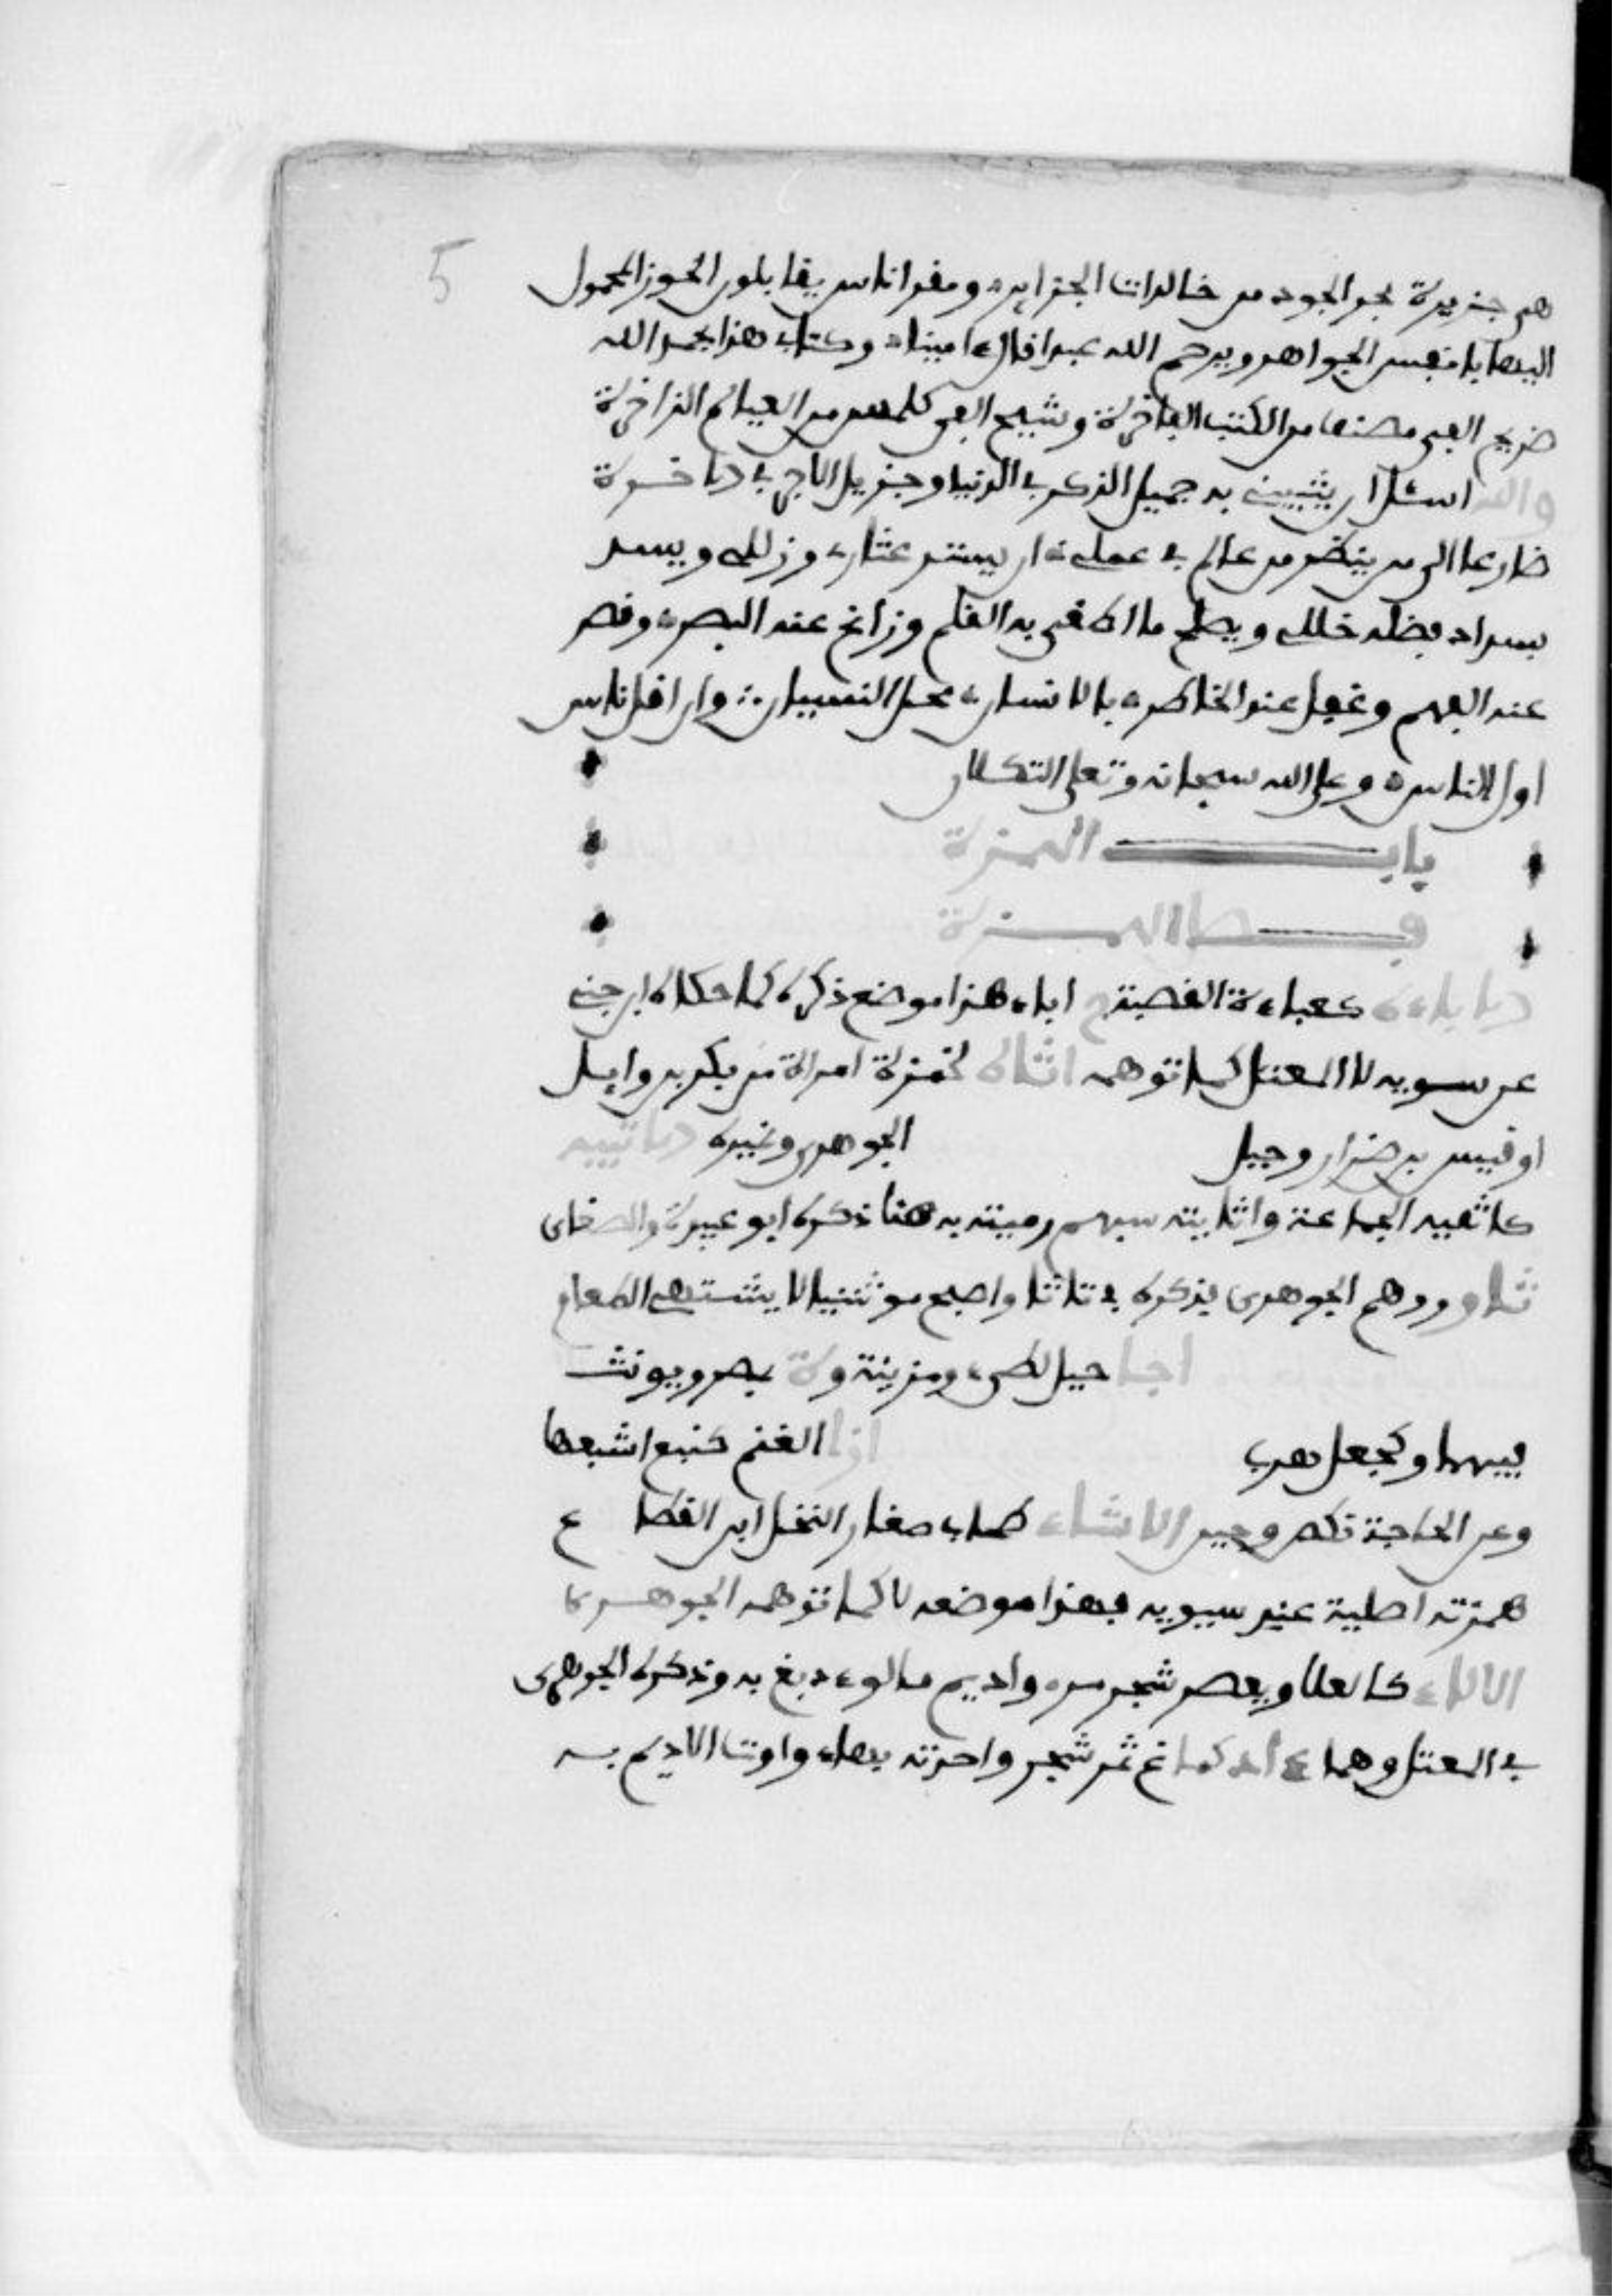 5
هى جزيرة بحر الجود من خالدات الجزاير ومقر اناس يقابلون الخرز المحمول
اليها بانفس الجواهر ويرحم الله عبدا قال امينا وكتابى هذا بحمد الله
صريح الفى مصنف من الكتب الفاخرة ونتيج الفى قلمس من العيالم الزاخرة
والله اسئل ان يثيبنى به جميل الذكر في الدنيا وجزيل الاجر في الاخرة
ضارعا الى من ينظر من عالم في عملى ان يستر عثارى وزللى ويسد
بسداد فضله خللى ويصلح ما طغى به القلم وزاغ عنه البصر وقصر
عنه الفهم وغفل عنه الخاطر بالانسان محل النسيان وان اول ناس
اول الناس وعلى الله سبحانه وتعلى التكلان
باب الهمزة
فصل الهمزة
الاباءة كعباءة القصبة ج اباء هذا موضع ذكره كما حكاه ابن جنى
عن سيبويه لا المعتل كما توهمه اثاة كحمزة امراة من بكر بن وايل
او قيس بن ضرار وجبل
الجوهرى وغيره الاثيية
كاثفية الجماعة واثاته بسهم رميته به هنا ذكره ابو عبيد والصغانى
ثاو ووهم الجوهرى فذكره في ثاثا واصبح موتثيا لا يشتهى الطعام
اجا جبل لطىء ومزينة وة بمصر ويونث
فيهما وكجعل هرب
ازا الغنم كمنع اشبعها
وعن الحاجة نكص وجبن الاشاء كسحاب صغار النخل ابن القطاع
همزته اصلية عند سيبويه فهذا موضعه لا كما توهمه الجوهرى
الالاء كالعلا ويقصر شجر مر واديم مالوء دبغ به وذكره الجوهرى
في المعتل وهما ااء كعاع ثمر شجر واحدته بهاء واوت الاديم به